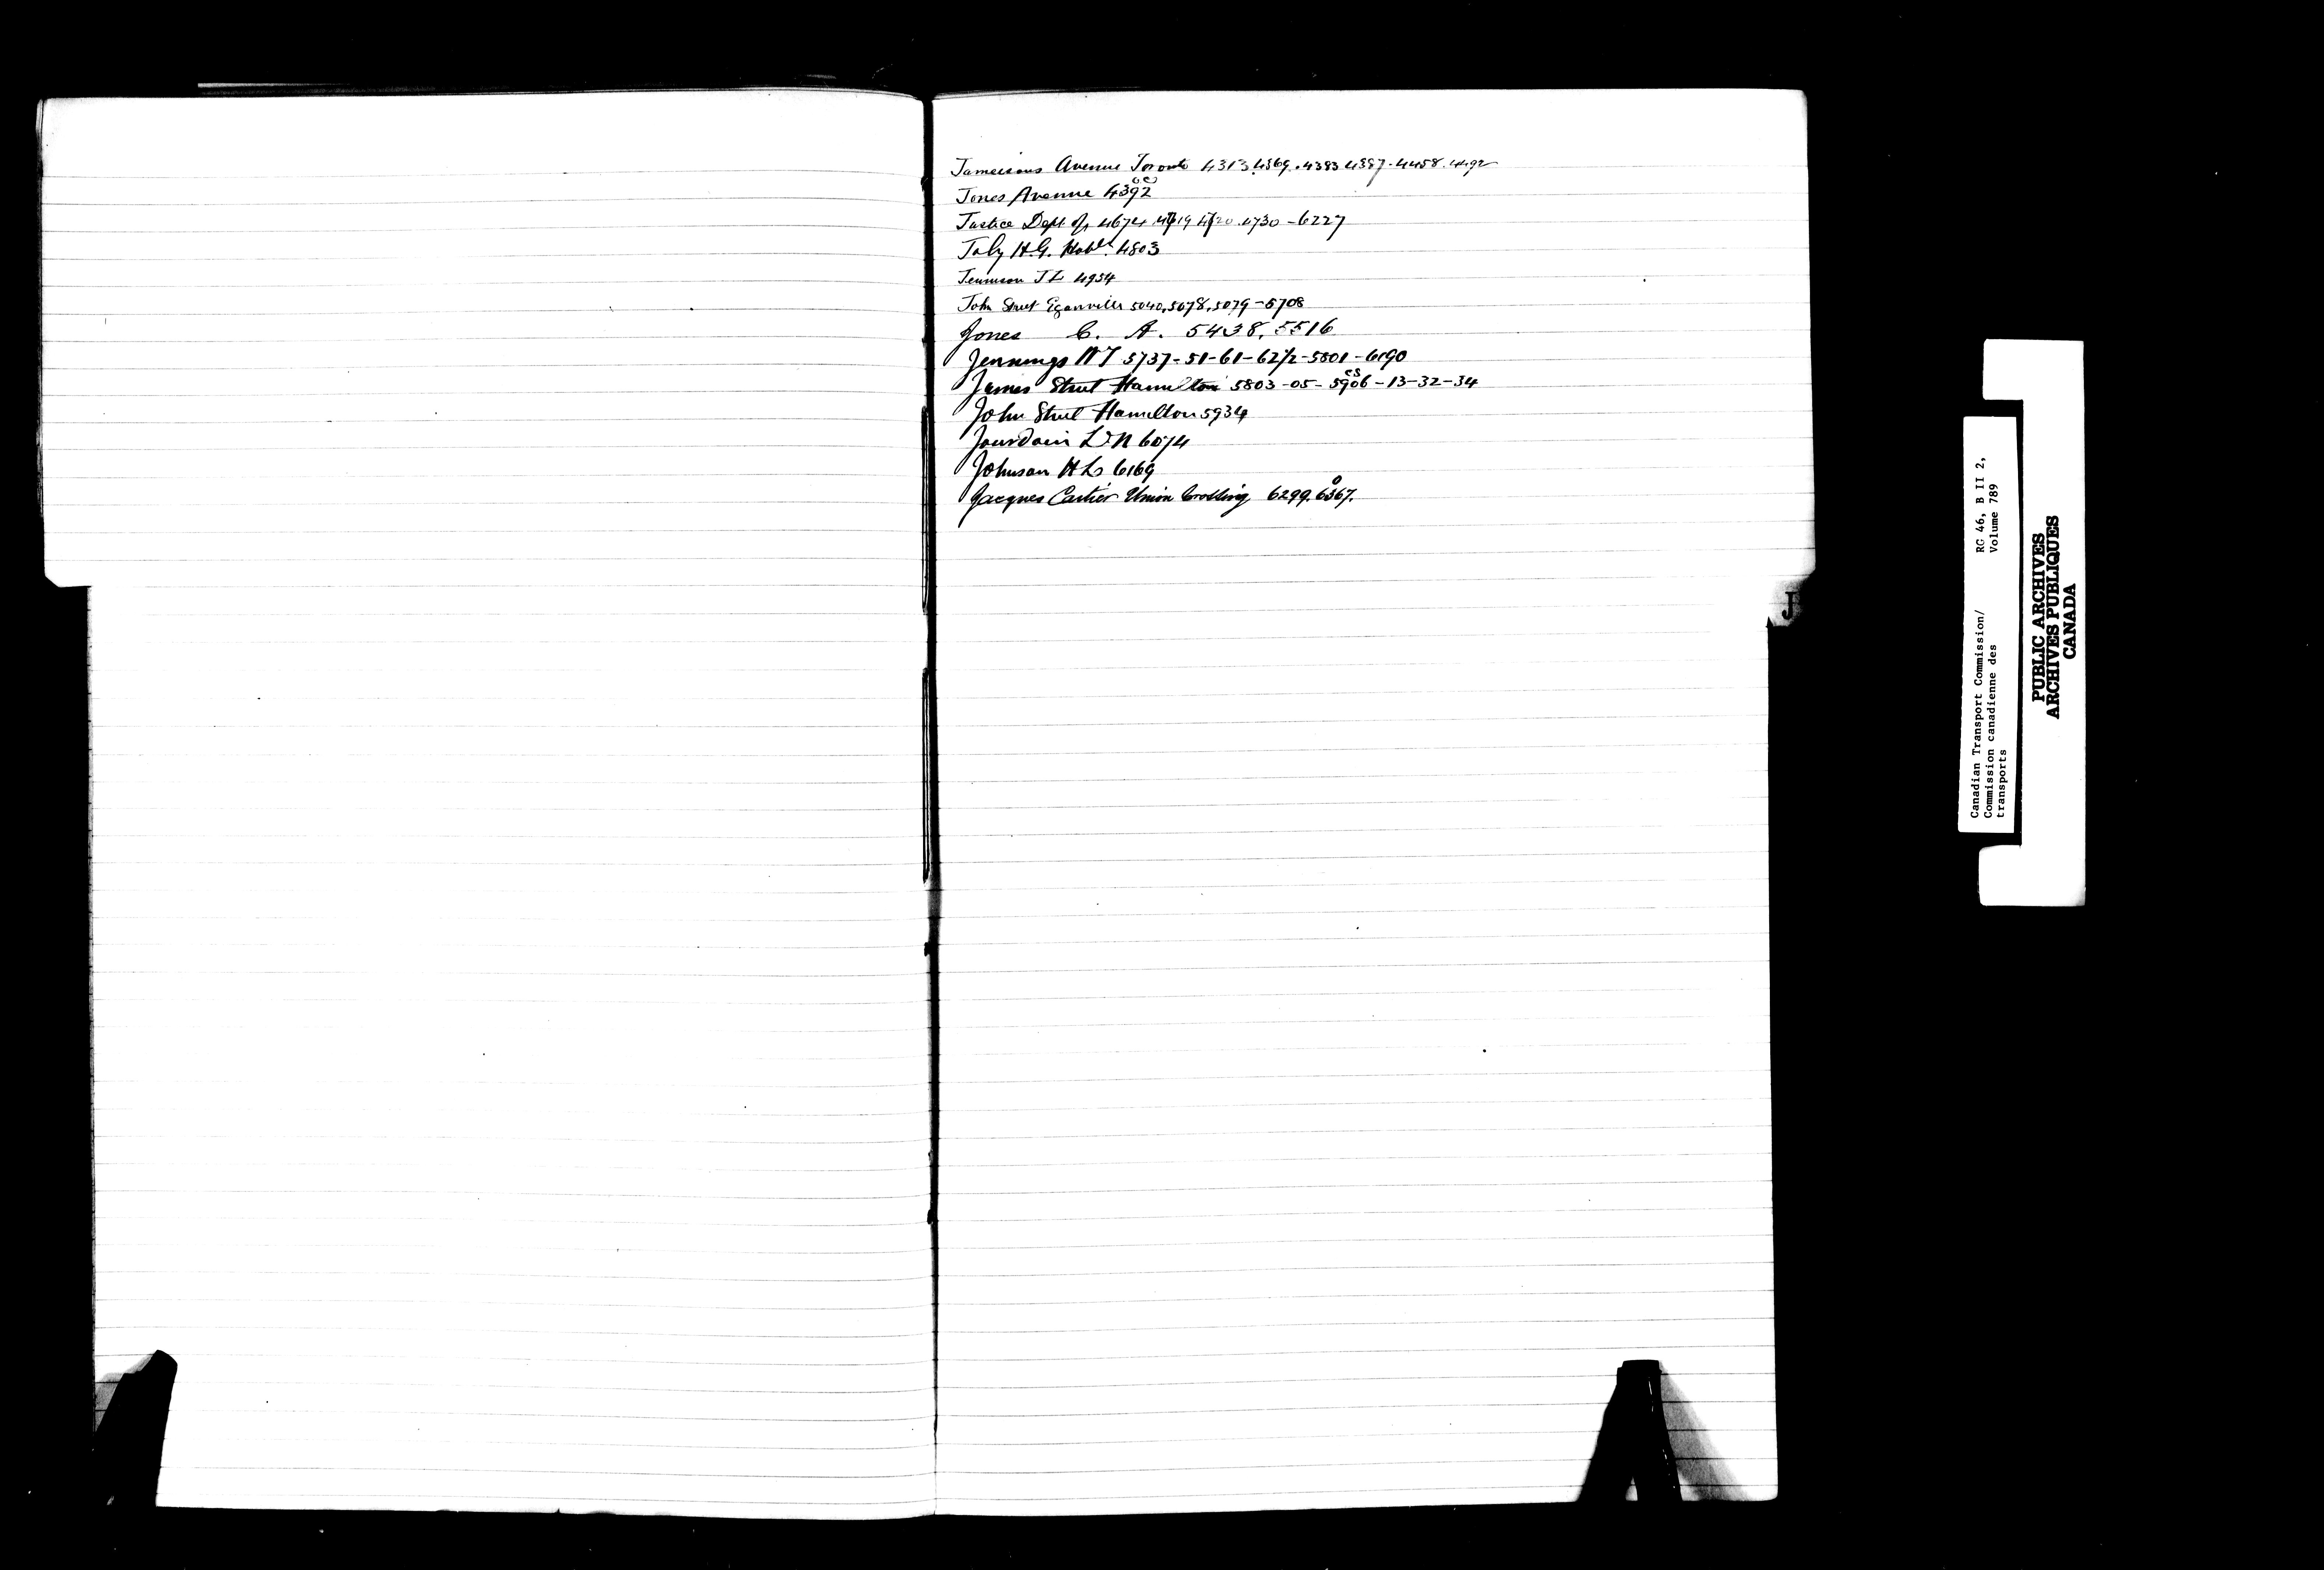 Jamesons Avenue Toronto 4313.4369.4383 4387.4458.4492
Jones Avenue 4392 oc
Justice Dept of, 4674.4719 4720.4730-6227
Joly H.G. 4803
Jennison J L 4954
John Street Eganville 5040,5078,5079-5708
Jones C. A. 5438, 5516
Jennings W T 5737-51-61-62/2-5801-6190
James Street Hamilton 5803-05-5906 cs-13-32-34
John Street Hamilton 5934
Jourdain 6074
Johnson H L 6169
Jacques Cartier Union Crossing 6299.6367.
J
Canadian Transport Commission/
Commission canadienne des
transports
RG 46, B II 2,
Volume 789
PUBLIC ARCHIVES
ARCHIVES PUBLIQUES
CANADA